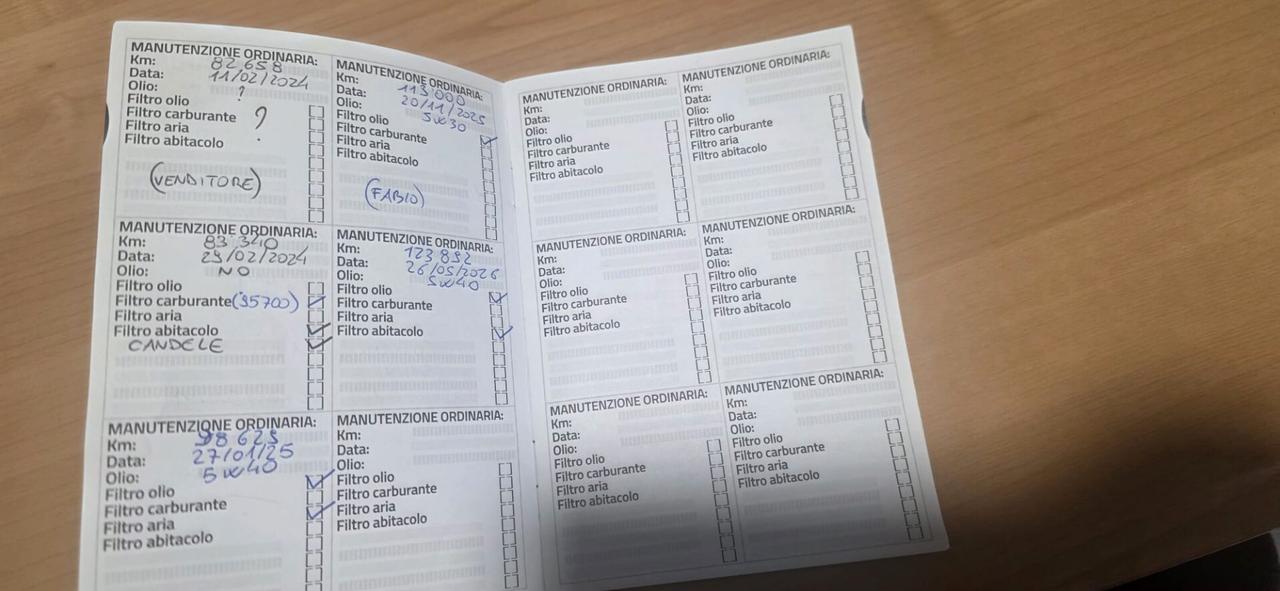 MANUTENZIONE ORDINARIA:
Km: 82.658
Data: 11/02/2024
Olio: ?
Filtro olio
Filtro carburante ?
Filtro aria
Filtro abitacolo
(VENDITORE)
MANUTENZIONE ORDINARIA:
Km: 83.340
Data: 29/02/2024
Olio: NO
Filtro olio
Filtro carburante (95700)
Filtro aria
Filtro abitacolo
CANDELE
MANUTENZIONE ORDINARIA:
Km: 98.629
Data: 27/01/25
Olio: 5W40
Filtro olio
Filtro carburante
Filtro aria
Filtro abitacolo
MANUTENZIONE ORDINARIA:
Km: 113.000
Data: 20/11/2025
Olio: 5W30
Filtro olio
Filtro carburante
Filtro aria
Filtro abitacolo
(FABIO)
MANUTENZIONE ORDINARIA:
Km: 123.892
Data: 26/05/2026
Olio: 5W40
Filtro olio
Filtro carburante
Filtro aria
Filtro abitacolo
MANUTENZIONE ORDINARIA:
Km:
Data:
Olio:
Filtro olio
Filtro carburante
Filtro aria
Filtro abitacolo
MANUTENZIONE ORDINARIA:
Km:
Data:
Olio:
Filtro olio
Filtro carburante
Filtro aria
Filtro abitacolo
MANUTENZIONE ORDINARIA:
Km:
Data:
Olio:
Filtro olio
Filtro carburante
Filtro aria
Filtro abitacolo
MANUTENZIONE ORDINARIA:
Km:
Data:
Olio:
Filtro olio
Filtro carburante
Filtro aria
Filtro abitacolo
MANUTENZIONE ORDINARIA:
Km:
Data:
Olio:
Filtro olio
Filtro carburante
Filtro aria
Filtro abitacolo
MANUTENZIONE ORDINARIA:
Km:
Data:
Olio:
Filtro olio
Filtro carburante
Filtro aria
Filtro abitacolo
MANUTENZIONE ORDINARIA:
Km:
Data:
Olio:
Filtro olio
Filtro carburante
Filtro aria
Filtro abitacolo